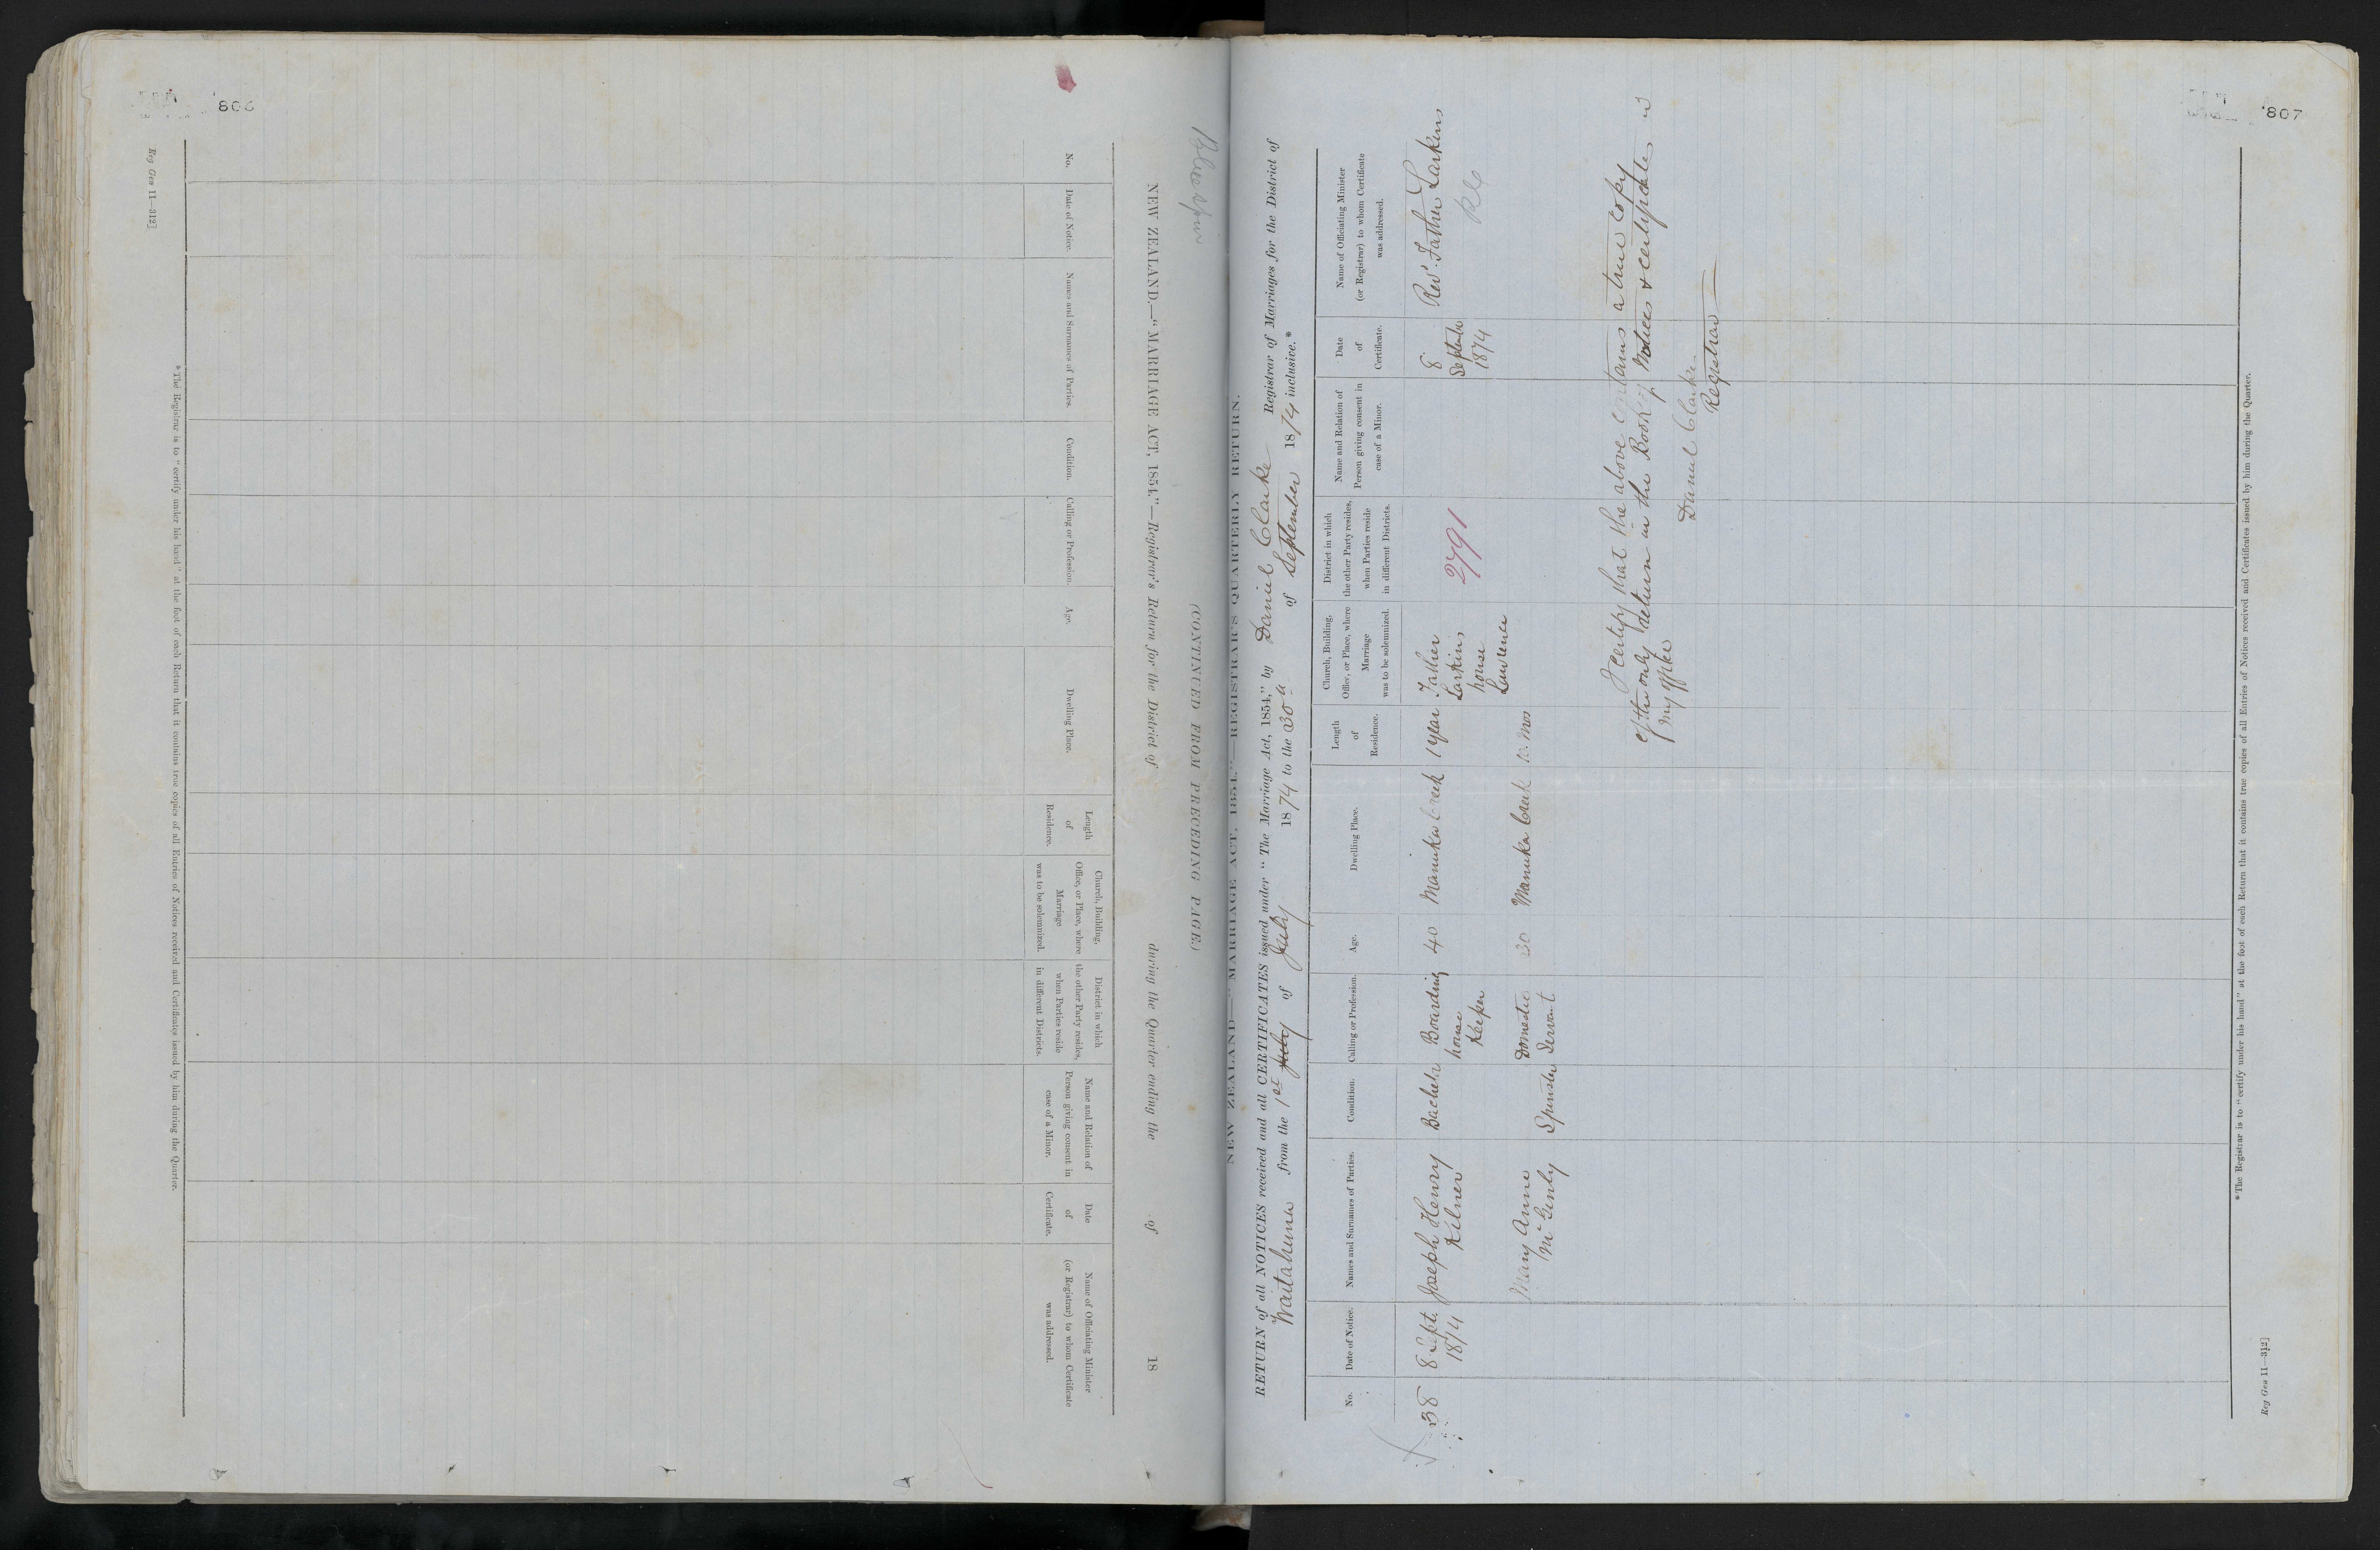 806
Reg Gen 11—312]
NEW ZEALAND.—"MARRIAGE ACT, 1854."—Registrar's Return for the District of during the Quarter ending the of 18
(CONTINUED FROM PRECEDING PAGE.)
No.
Date of Notice.
Names and Surnames of Parties.
Condition.
Calling or Profession.
Age.
Dwelling Place.
Length
of
Residence.
Church, Building,
Office, or Place, where
Marriage
was to be solemnized.
District in which
the other Party resides,
when Parties reside
in different Districts.
Name and Relation of
Person giving consent in
case of a Minor.
Date
of
Certificate.
Name of Officiating Minister
(or Registrar) to whom Certificate
was addressed.
* The Registrar is to "certify under his hand" at the foot of each Return that it contains true copies of all Entries of Notices received and Certificates issued by him during the Quarter.
807
NEW ZEALAND—"MARRIAGE ACT, 1854."—REGISTRAR'S QUARTERLY RETURN.
RETURN of all NOTICES received and all CERTIFICATES issued under "The Marriage Act, 1854," by Daniel Clarke Registrar of Marriages for the District of
Waitahuna from the 1st July of July 1874 to the 30th of September 1874 inclusive.*
No.
Date of Notice.
Names and Surnames of Parties.
Condition.
Calling or Profession.
Age.
Dwelling Place.
Length
of
Residence.
Church, Building,
Office, or Place, where
Marriage
was to be solemnized.
District in which
the other Party resides,
when Parties reside
in different Districts.
Name and Relation of
Person giving consent in
case of a Minor.
Date
of
Certificate.
Name of Officiating Minister
(or Registrar) to whom Certificate
was addressed.
38
8 Sept.
1874
Joseph Henry
Kilner
Bachelr
Boarding
house
Keeper
40
Manuka Creek
1 year
Father
Larkins
house
Lawrence
2791
8
September
1874
Revd. Father Larkins
RC
Mary Anne
McGinly
Spinster
Domestic
Servant
30
Manuka Creek
10 Mos
I certify that the above contains a true copy
of the only return in the Book of Notices & certificates in
my office
Daniel Clarke
Registrar
* The Registrar is to "certify under his hand" at the foot of each Return that it contains true copies of all Entries of Notices received and Certificates issued by him during the Quarter.
Reg Gen 11—312]